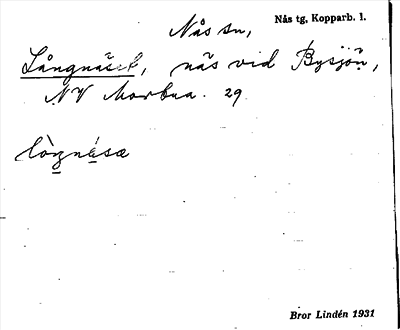 Nås sn, Nås tg, Kopparb. l.
Långnäset, näs vid Bysjön,
NV Morbua. 29
lògnésœ
Bror Lindén 1931